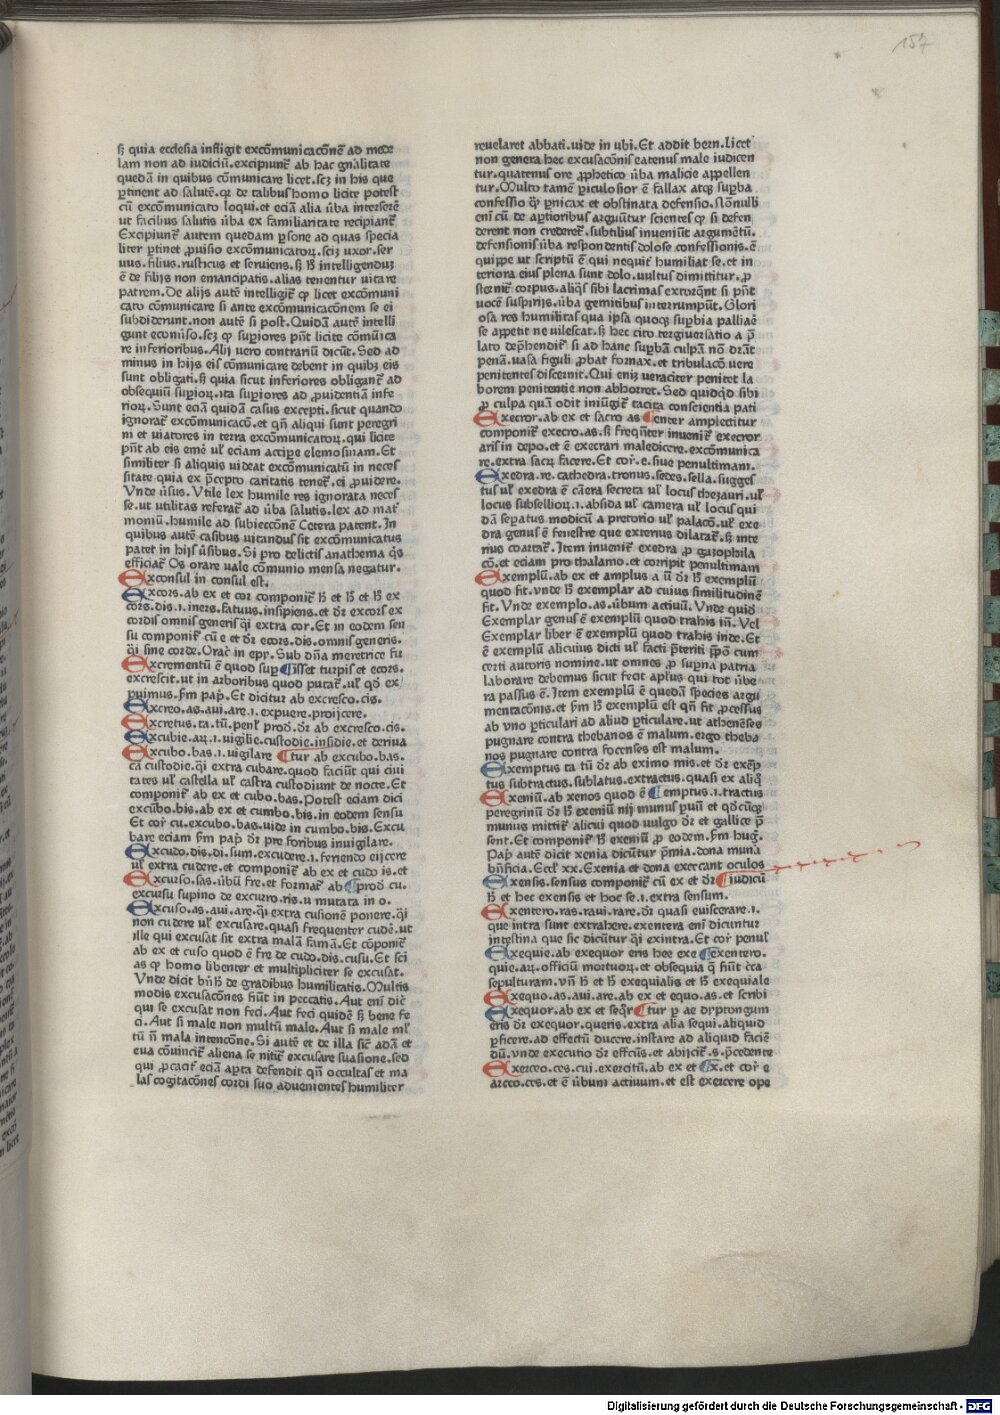 157
sꝫ quia ecclesia infligit excōmunicacōnē ad mede
lam non ad iudiciū.excipiunt̄ ab hac gnālitate
quedā in quibus cōmunicare licet.scꝫ in his que
ꝑtinent ad salutē.qꝛ de talibus homo licite potest
cū excōmunicato loqui.et eciā alia v̄ba interserē
ut facilius salutis v̄ba ex familiaritate recipiant̄
Excipiunt̄ autem quedam ꝑsone ad quas specia
liter ꝑtinet ꝓuisio excōmunicatoꝝ.sciꝫ uxor.ser
uus.filius.rusticus et seruiens.sꝫ h̄ intelligenduꝫ
ē de filijs non emancipatis.alias tenentur uitare
patrem.De alijs autē intelligit̄ ꝙ licet excōmuni
cato cōmunicare si ante excōmunicacōnem se ei
subdiderunt.non autē si post.Quidā autē intelli
gunt econūso.scꝫ ꝙ suꝑiores pn̄t licite cōmūica
re inferioribus.Alij uero contrariū dicūt.Sed ad
minus in hijs eis cōmunicare debent in quibꝫ eis
sunt obligati.sꝫ quia sicut inferiores obligant̄ ad
obsequiū suꝑioꝝ.ita suꝑiores ad ꝓuidentiā infe
rioꝝ.Sunt eciā quidā casus excepti.sicut quando
ignorat̄ excōmunicacō.et qn̄ aliqui sunt peregri
ni et uiatores in terra excōmunicatoꝝ.qui licite
pn̄t ab eis emē ul̄ eciam acciꝑe elemosinam.Et
similiter si aliquis uideat excōmunicatū in neces
sitate quia ex p̄cepto caritatis tenet̄.ei ꝓuidere.
Vnde ūsus.Vtile lex humile res ignorata neces
se.ut utilitas referat̄ ad v̄ba salutis.lex ad mat̄
moniū.humile ad subieccōnē Cetera patent.In
quibus autē casibus uitandus sit excōmunicatus
patet in hijs ūsibus.Si pro delictis anathema q̄s
efficiat̄ Os orare uale cōmunio mensa negatur.
Exconsul in consul est.
Excors.ab ex et cor componit̄ h̄ et h̄ et h̄ ex
cors.dis.i.iners.fatuus.insipiens.et dr̄ excors ex
cordis omnis generis q̄i extra cor.Et in eodem sen
su componit̄ cū e et dr̄ ecors.dis.omnis generis.
q̄i sine corde.Orac̄ in epp̄.Sub dn̄a meretrice fu
Excrementū ē quod suꝑ ¶isset turpis et ecors.
excrescit.ut in arboribus quod putat̄.ul̄ qd̄ ex
puimus.fm̄ pap̄.Et dicitur ab excresco.cis.
Excreo.as.aui.are.i.expuere.proijcere.
Excretus.ta.tū.penl̄ prod̄.dr̄ ab excresco.cis.
Excubie.aꝝ.i.uigilie.custodie.insidie.et deriua
Excubo.bas.i.uigilare ¶tur ab excubo.bas.
ca custodie.q̄i extra cubare.quod faciūt qui ciui
tates ul̄ castella ul̄ castra custodiunt de nocte.Et
componit̄ ab ex et cubo.bas.Potest eciam dici
excūbo.bis.ab ex et cumbo.bis.in eodem sensu
Et cor̄ cu.excubo.bas.uide in cumbo.bis.Excu
bare eciam fm̄ pap̄ dr̄ pre foribus inuigilare.
Excudo.dis.di.sum.excudere.i.feriendo eijcere
ul̄ extra cudere.et componit̄ ab ex et cudo is.et
Excurso.sas.v̄bū fre.et format̄ ab ¶prod̄ cu.
excursu supino de excurro.ris.u mutata in o.
Excuso.as.aui.are.q̄i extra cusionē ponere.q̄i
non cudere ul̄ excusare.quasi frequenter cudē.ut
ille qui excusat sit extra malā famā.Et cōponit̄
ab ex et cuso quod ē fre de cudo.dis.cusu.Et sci
as ꝙ homo libenter et multipliciter se excusat.
Vnde dicit bn̄h̄ de gradibus humilitatis.Multis
modis excusacōnes fiūt in peccatis.Aut eni dic̄
qui se excusat non feci.Aut feci quidē sꝫ bene fe
ci.Aut si male non multū male.Aut si male ml̄
tū n̄ mala intencōne.Si autē et de illa sic̄ adā et
eua cōuincit̄ aliena se nitit̄ excusare suasione.sed
qui ꝓcacit̄ eciā aꝑta defendit qn̄ occultas et ma
las cogitacōnes cordi suo aduenientes humiliter
reuelaret abbati.uide in ubi.Et addit bern.Licet
non genera hec excusacōnis eatenus male iudicen
tur.quatenus ore ꝓphetico v̄ba malicie appellen
tur.Multo tamē ꝑiculosior ē fallax atqꝫ suꝑba
confessio ꝙ ꝑnicax et obstinata defensio.Nōnulli
eni cū de aꝑtioribus arguūtur scientes ꝙ si defen
derent non crederet̄.subtilius inueniūt argumētū.
defensionis v̄ba respondentis dolose confessionis.ē
quippe ut scriptū ē qui nequit̄ humiliat se.et in
teriora eius plena sunt dolo.uultus dimittitur.ꝓ
sternit̄ corpus.aliqs̄ sibi lacrimas extorqn̄t si pn̄t
uocē suspirijs.v̄ba gemitibus interrumpūt.Glori
osa res humilitas qua ipsa quoqꝫ suꝑbia palliaē
se appetit ne uilescat.sꝫ hec cito tergiuersatio a p̄
lato depͪendit̄ si ad hanc suꝑbā culpā nō dr̄āt
penā.uasa figuli ꝓbat fornax.et tribulacō uere
penitentes discernit.Qui eniꝫ ueraciter penitet la
borem penitentie non abhorret.Sed quidqd̄ sibi
ꝓ culpa quā odit iniūgit̄ tacita conscientia pati
Execror.ab ex et sacro as ¶enter amplectitur
componit̄ execro.as.sꝫ freqn̄ter inuenit̄ execror
aris in depo.et ē execrari maledicere.excōmunica
re.extra sacꝝ facere.Et cor̄.e.siue penultimam.
Exedra.re.cathedra.tronus.sedes.sella.sugges
tus ul̄ exedra ē cāera secreta ul̄ locus thezauri.ul̄
locus subsellioꝝ.i.absida ul̄ camera ul̄ locus qui
dā seꝑatus modicū a pretorio ul̄ palacō.ul̄ exe
dra genus ē fenestre que exterius dilatat̄.sꝫ inte
rius coartat̄.Item inuenit̄ exedra ꝓ gazophila
cō.et eciam pro thalamo.et corripit penultimam
Exemplū.ab ex et amplus a ū dr̄ h̄ exemplū
quod fit.vnde h̄ exemplar ad cuius similitudinē
fit.Vnde exemplo.as.v̄bum actiuū.Vnde quid̄
Exemplar genus ē exemplū quod trahis in̄.Vel
Exemplar liber ē exemplū quod trahis inde.Et
ē exemplū alicuius dicti ul̄ facti p̄teriti ꝓpō cum
certi autoris nomine.ut omnes ꝓ suꝑna patria
laborare debemus sicut fecit apl̄us qui tot ūbe
ra passus ē.Item exemplū ē quedā species argu
mentacōnis.et fm̄ h̄ exemplū est qn̄ fit ꝓcessus
ab vno ꝑticulari ad aliud ꝑticulare.ut athenēses
pugnare contra thebanos ē malum.ergo theba
nos pugnare contra focenses est malum.
Exemptus ta tū dr̄ ab eximo mis.et dr̄ exēp
tus subtractus.sublatus.extractus.quasi ex aliq̄
Exeniū.ab xenos quod ē ¶emptus.i.tractus
peregrinū dr̄ h̄ exeniū nij munus ꝑuū et qd̄cūqꝫ
munus mittit̄ alicui quod uulgo dr̄ et gallice p̄
sent.Et componit̄ h̄ exeniū ꝓ eodem.fm̄ huḡ.
Pap̄ autē dicit xenia dicūtur p̄mia.dona muna
bn̄ficia.Eccl̄ xx.Exenia et dona execrant oculos
Exensis.sensus componit̄ cū ex et dr̄ ¶iudicū
h̄ et hec exensis et hoc se.i.extra sensum.
Exentero.ras.raui.rare.dr̄ quasi euiscerare.i.
que intra sunt extrahere.exentera eni dicuntur
intestina que sic dicūtur q̄i exintra.Et cor̄ penul̄
Exequie.ab exequor eris hee exe ¶exentero.
quie.aꝝ.officiū mortuoꝝ.et obsequia q̄ fiūt c̄ca
sepulturam.vn̄ h̄ et h̄ exequialis et h̄ exequiale
Exequo.as.aui.are.ab ex et equo.as.et scribi
Exequor.ab ex et seqr̄ ¶tur ꝑ ae dyptongum
eris dr̄ exequor.queris.extra alia sequi.aliquid
ꝑficere.ad effectū ducere.instare ad aliquid faciē
dū.vnde executio dr̄ effcūs.et abijcit̄.s.p̄cedente
Exerceo.ces.cui.exercitū.ab ex et ¶x.et cor̄ e
arceo.ces.et ē v̄bum actiuum.et est exercere ope
Digitalisierung gefördert durch die Deutsche Forschungsgemeinschaft - DFG